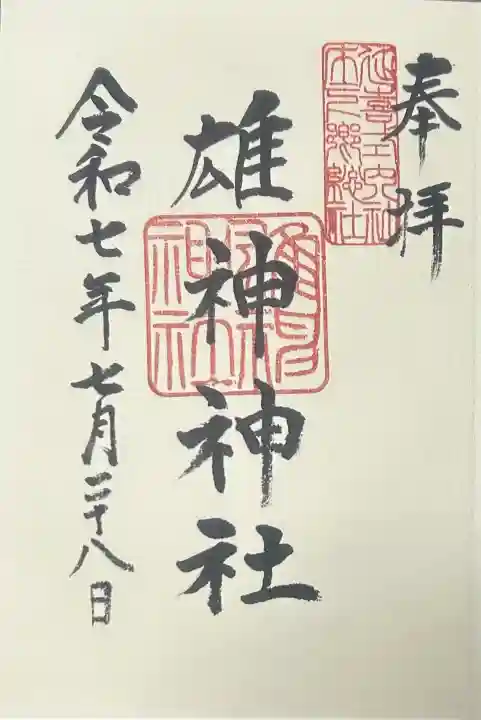 奉拝
雄神神社
雄神神社
令和七年七月二十八日